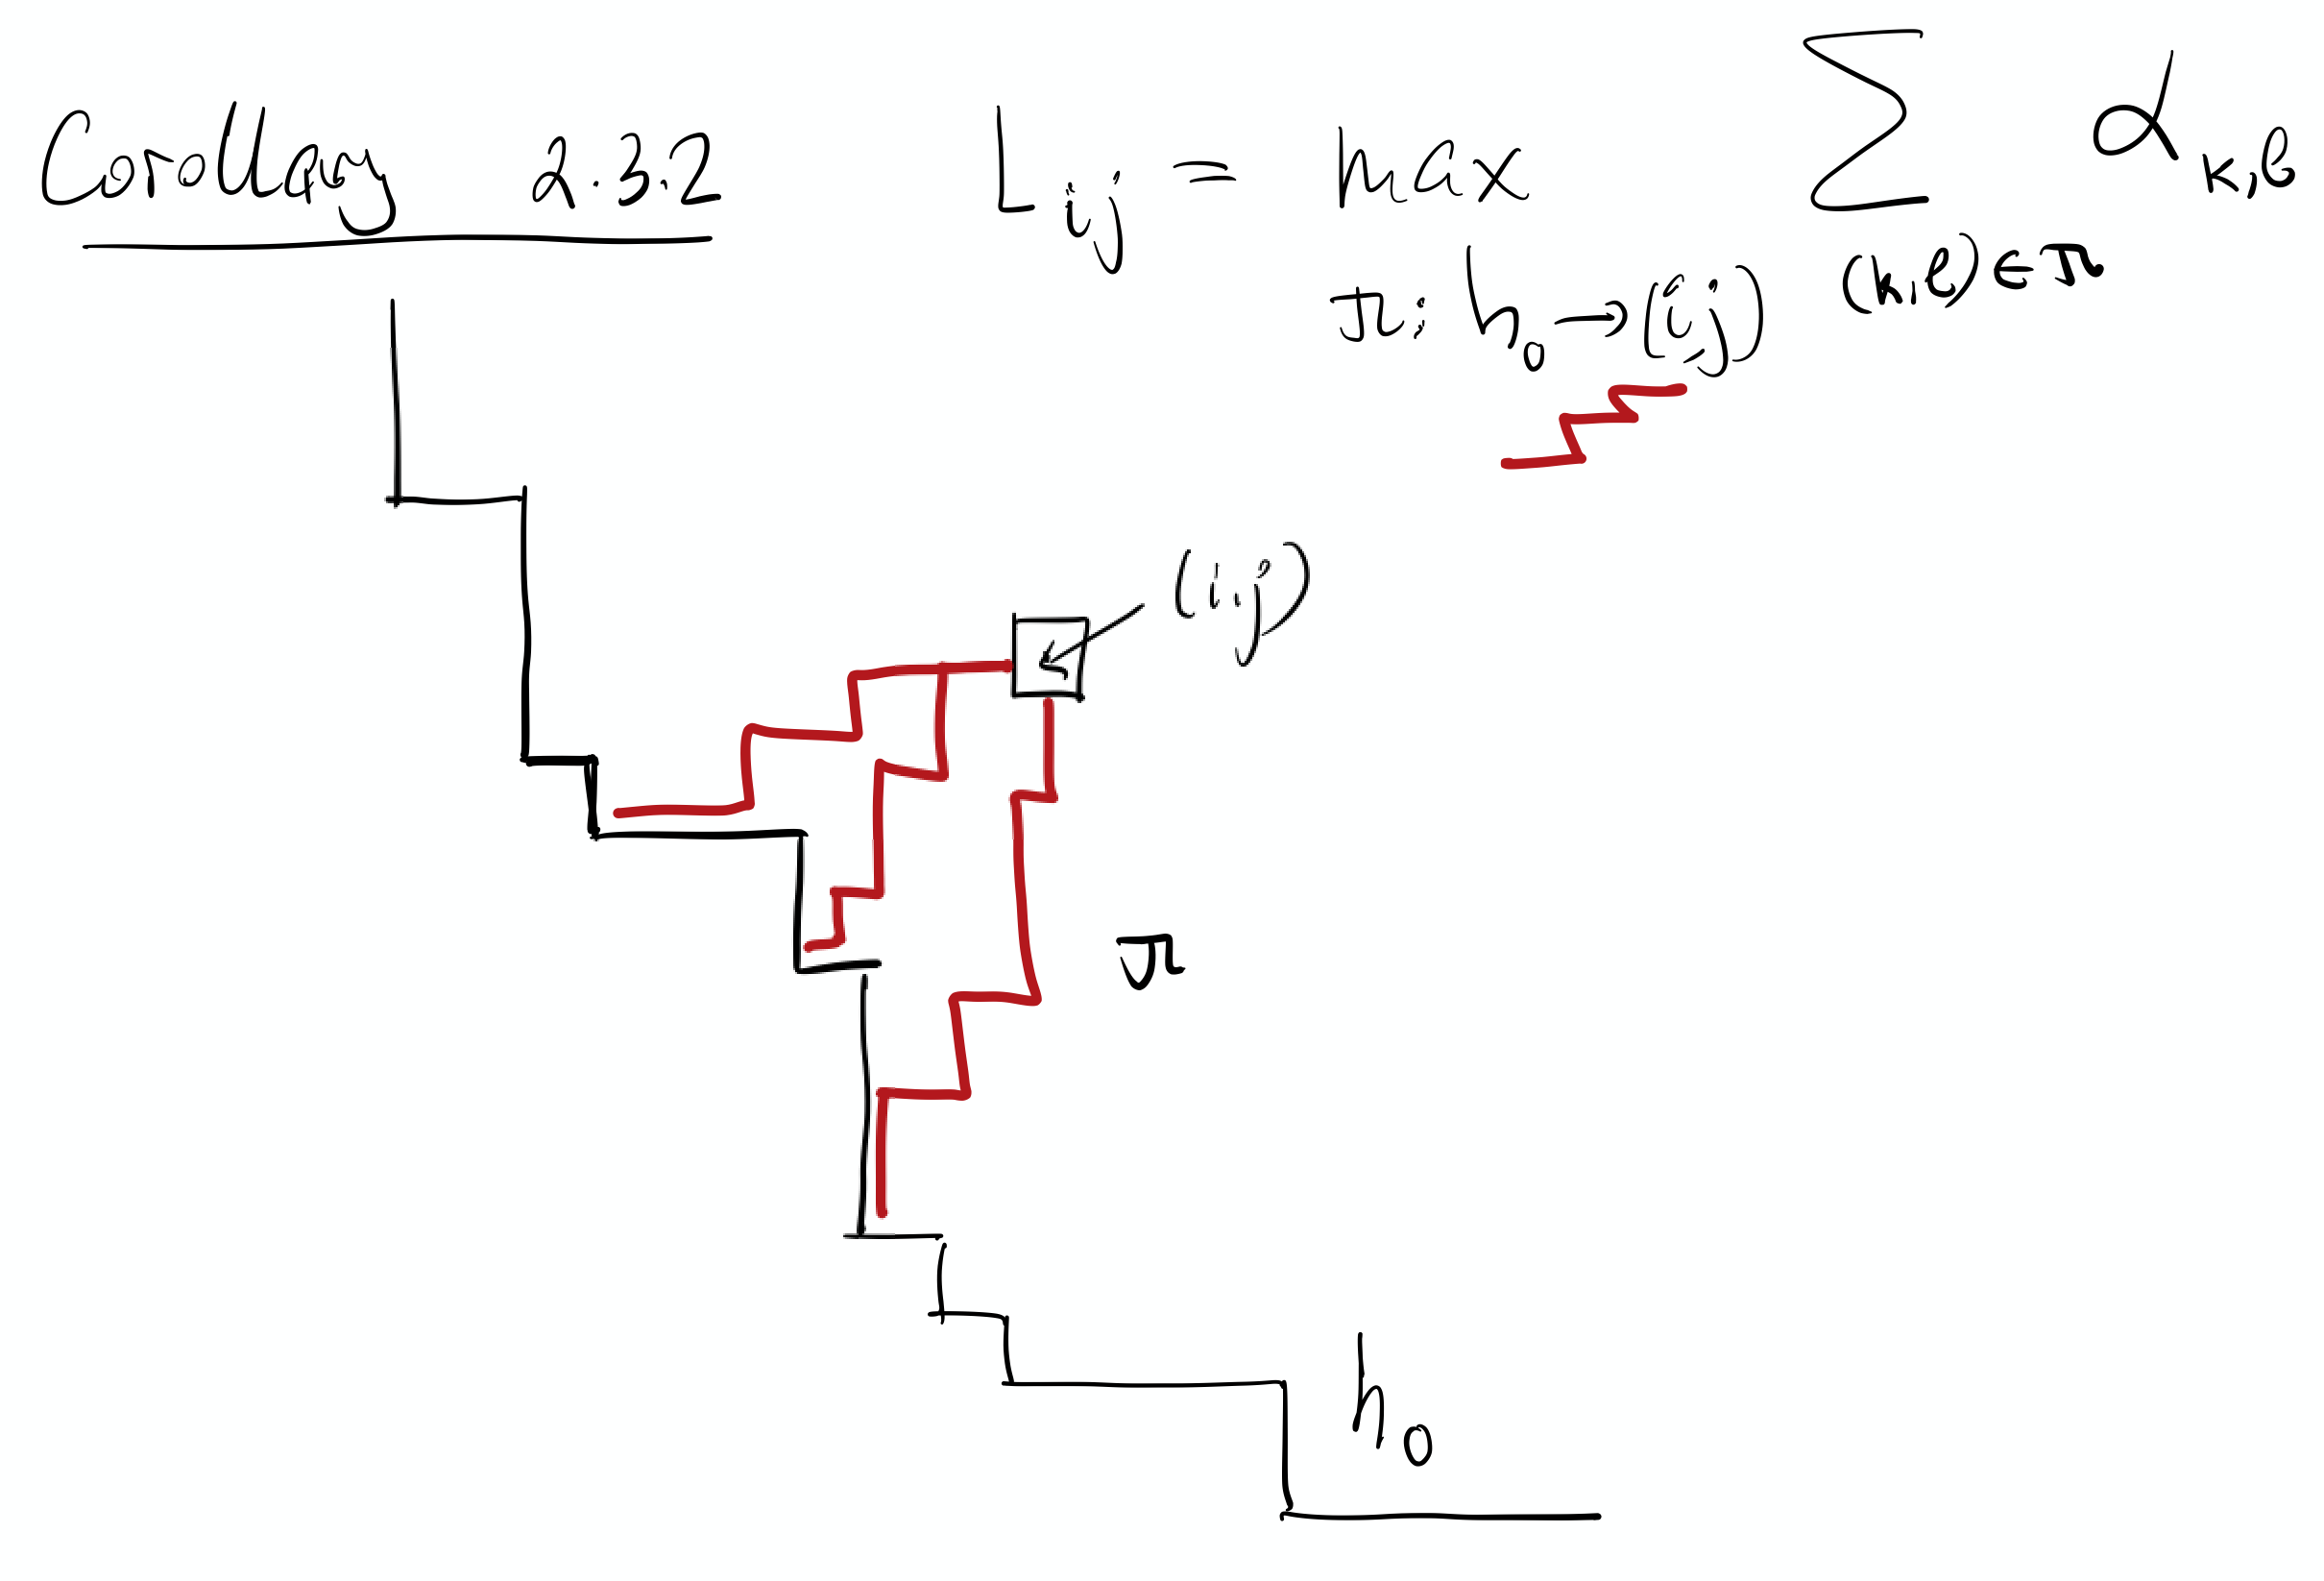 Corollary 2.32 L_{ij} = max_{π: h_0 → (i,j)} Σ_{(k,l) ∈ π} α_{k,l}
(i,j)
π
h_0